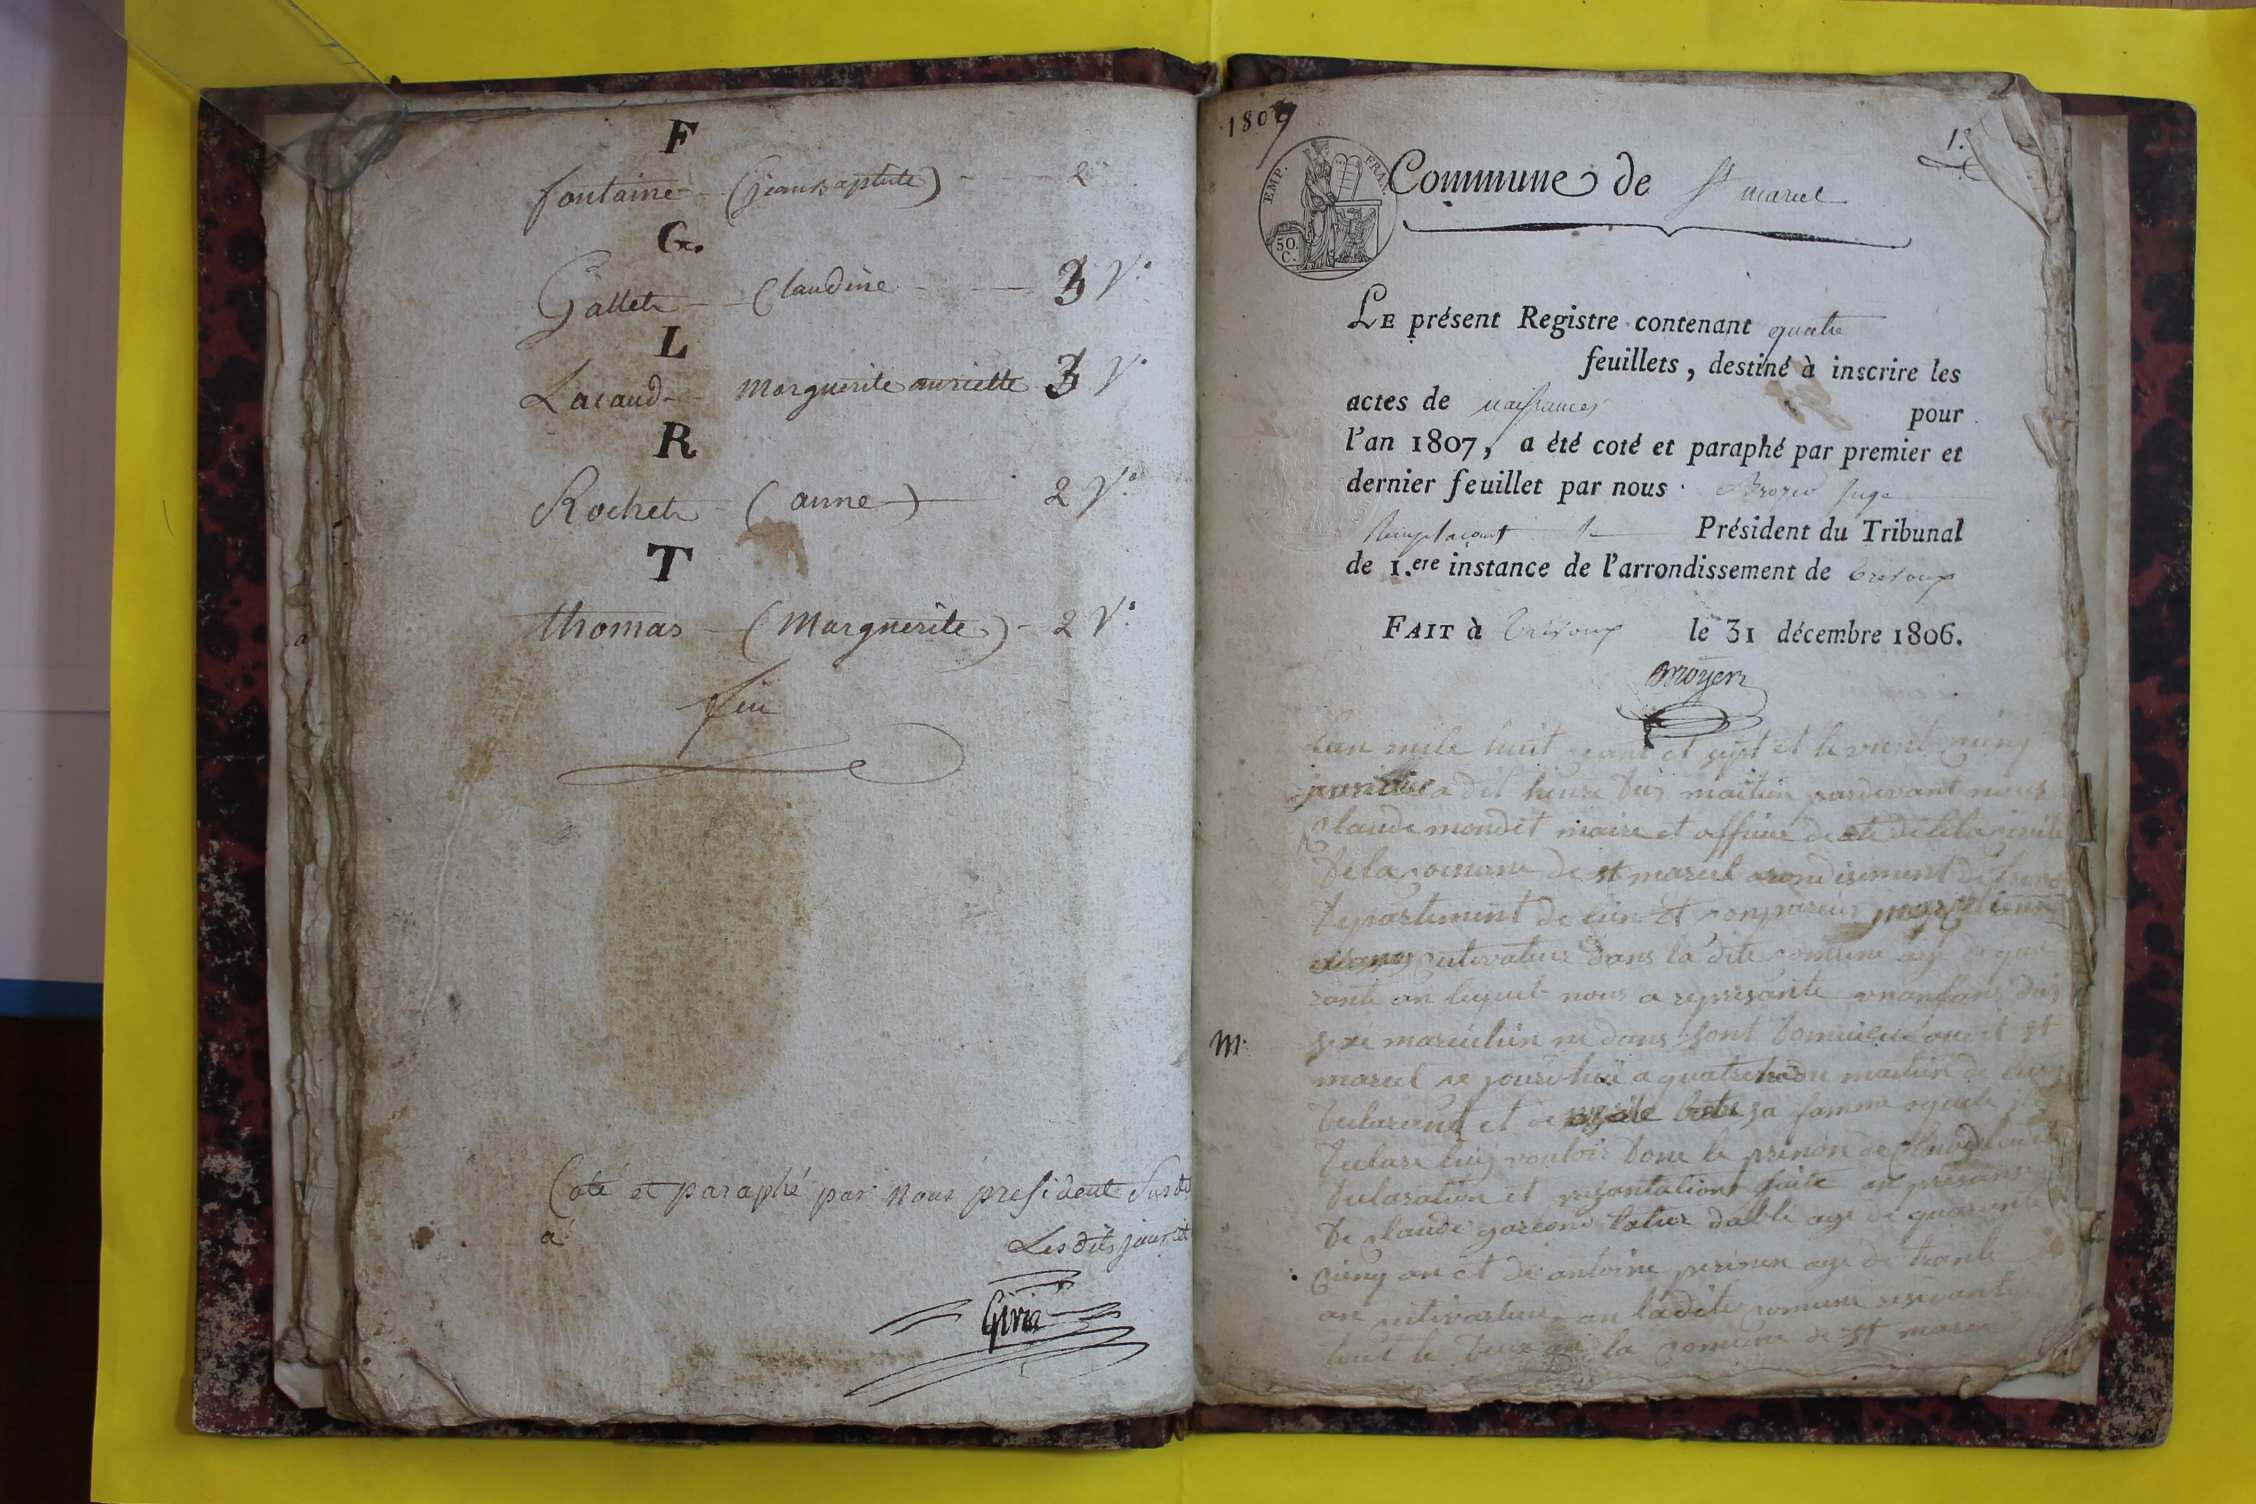 F
fontaine - (jean Baptiste) - - - 2
G.
Gallet - Claudine - - 3 V.°
L
Lacaud - Marguerite mariette 3 V.°
R
Rochet - (anne) - 2 V.°
T
thomas - (Marguerite) - 2 V.°
fin
Coté et paraphé par Nous president Susdt
a
Les dits jour et
1807
1.
EMP. FRAN.
50. C.
Commune de St marcel
LE présent Registre contenant quatre
feuillets, destiné à inscrire les
actes de naissances pour
l'an 1807, a été coté et paraphé par premier et
dernier feuillet par nous juge
Remplacant le Président du Tribunal
de 1.ere instance de l'arrondissement de trevoux
FAIT à Trévoux le 31 décembre 1806.
lan mile huit cant et sept et le vient cinq
janvier a dit heure dus maitin pardevant nous
Claude mondet maire et officier de
de la comune de st marcel arondisement de
departement de lain et
cultivateur dans la dite comune age de qua
rante an lequel nous a representé un anfans dus
M.
sexe masculin ne dans sont domicile audit st
marcel ce jourdhui a quatre maitin de
declarant et de sa famme
declare luy vouloir done le prenon de claude
declaration et presantation faite an presans
de claude age de quarante
cienq an et de antoine age de trante
an cultivateur an la dite comune
tout le deux la comune de st marcel